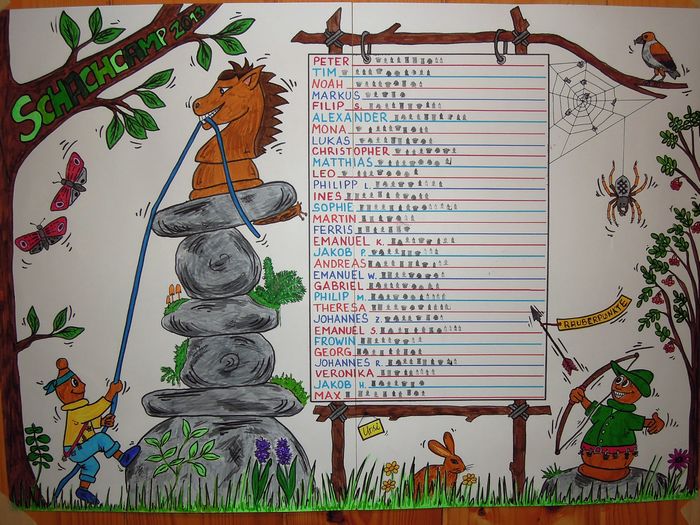 SCHACHCAMP 2013
PETER
TIM
NOAH
MARKUS
FILIP S.
ALEXANDER
MONA
LUKAS
CHRISTOPHER
MATTHIAS
LEO
PHILIPP L.
INES
SOPHIE
MARTIN
FERRIS
EMANUEL K.
JAKOB P.
ANDREAS
EMANUEL W.
GABRIEL
PHILIP M.
THERESA
JOHANNES Z.
EMANUEL S.
FROWIN
GEORG
JOHANNES R.
VERONIKA
JAKOB H.
MAX
RÄUBERPUNKTE